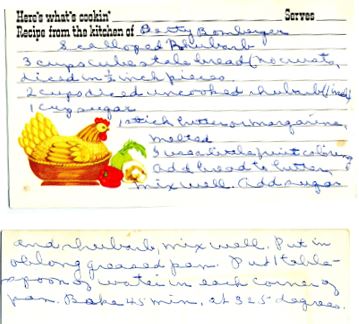 Here's what's cookin' Serves
Recipe from the kitchen of Betty Bomberger
Scalloped Rhubarb
3 cups cubes stale bread (no crusts,
diced in ½ inch pieces
2 cups diced uncooked rhubarb
1 cup sugar
1 stick butter or margarine,
melted
I use a little fruit coloring
Add bread to butter,
mix well. Add sugar
and rhubarb, mix well. Put in
oblong greased pan. Put 1 table-
spoon of water in each corner of
pan. Bake 45 min. at 325 degrees.